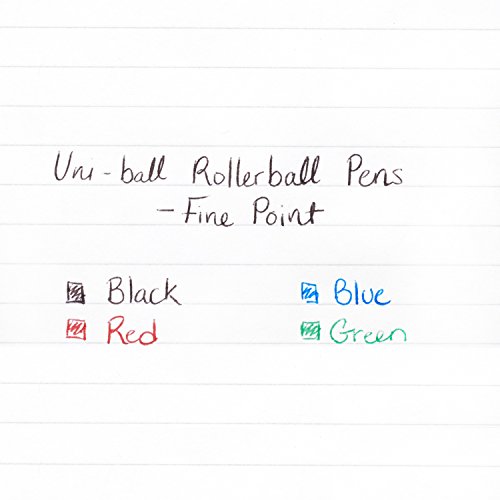 Uni-ball Rollerball Pens
- Fine Point
Black Blue
Red Green